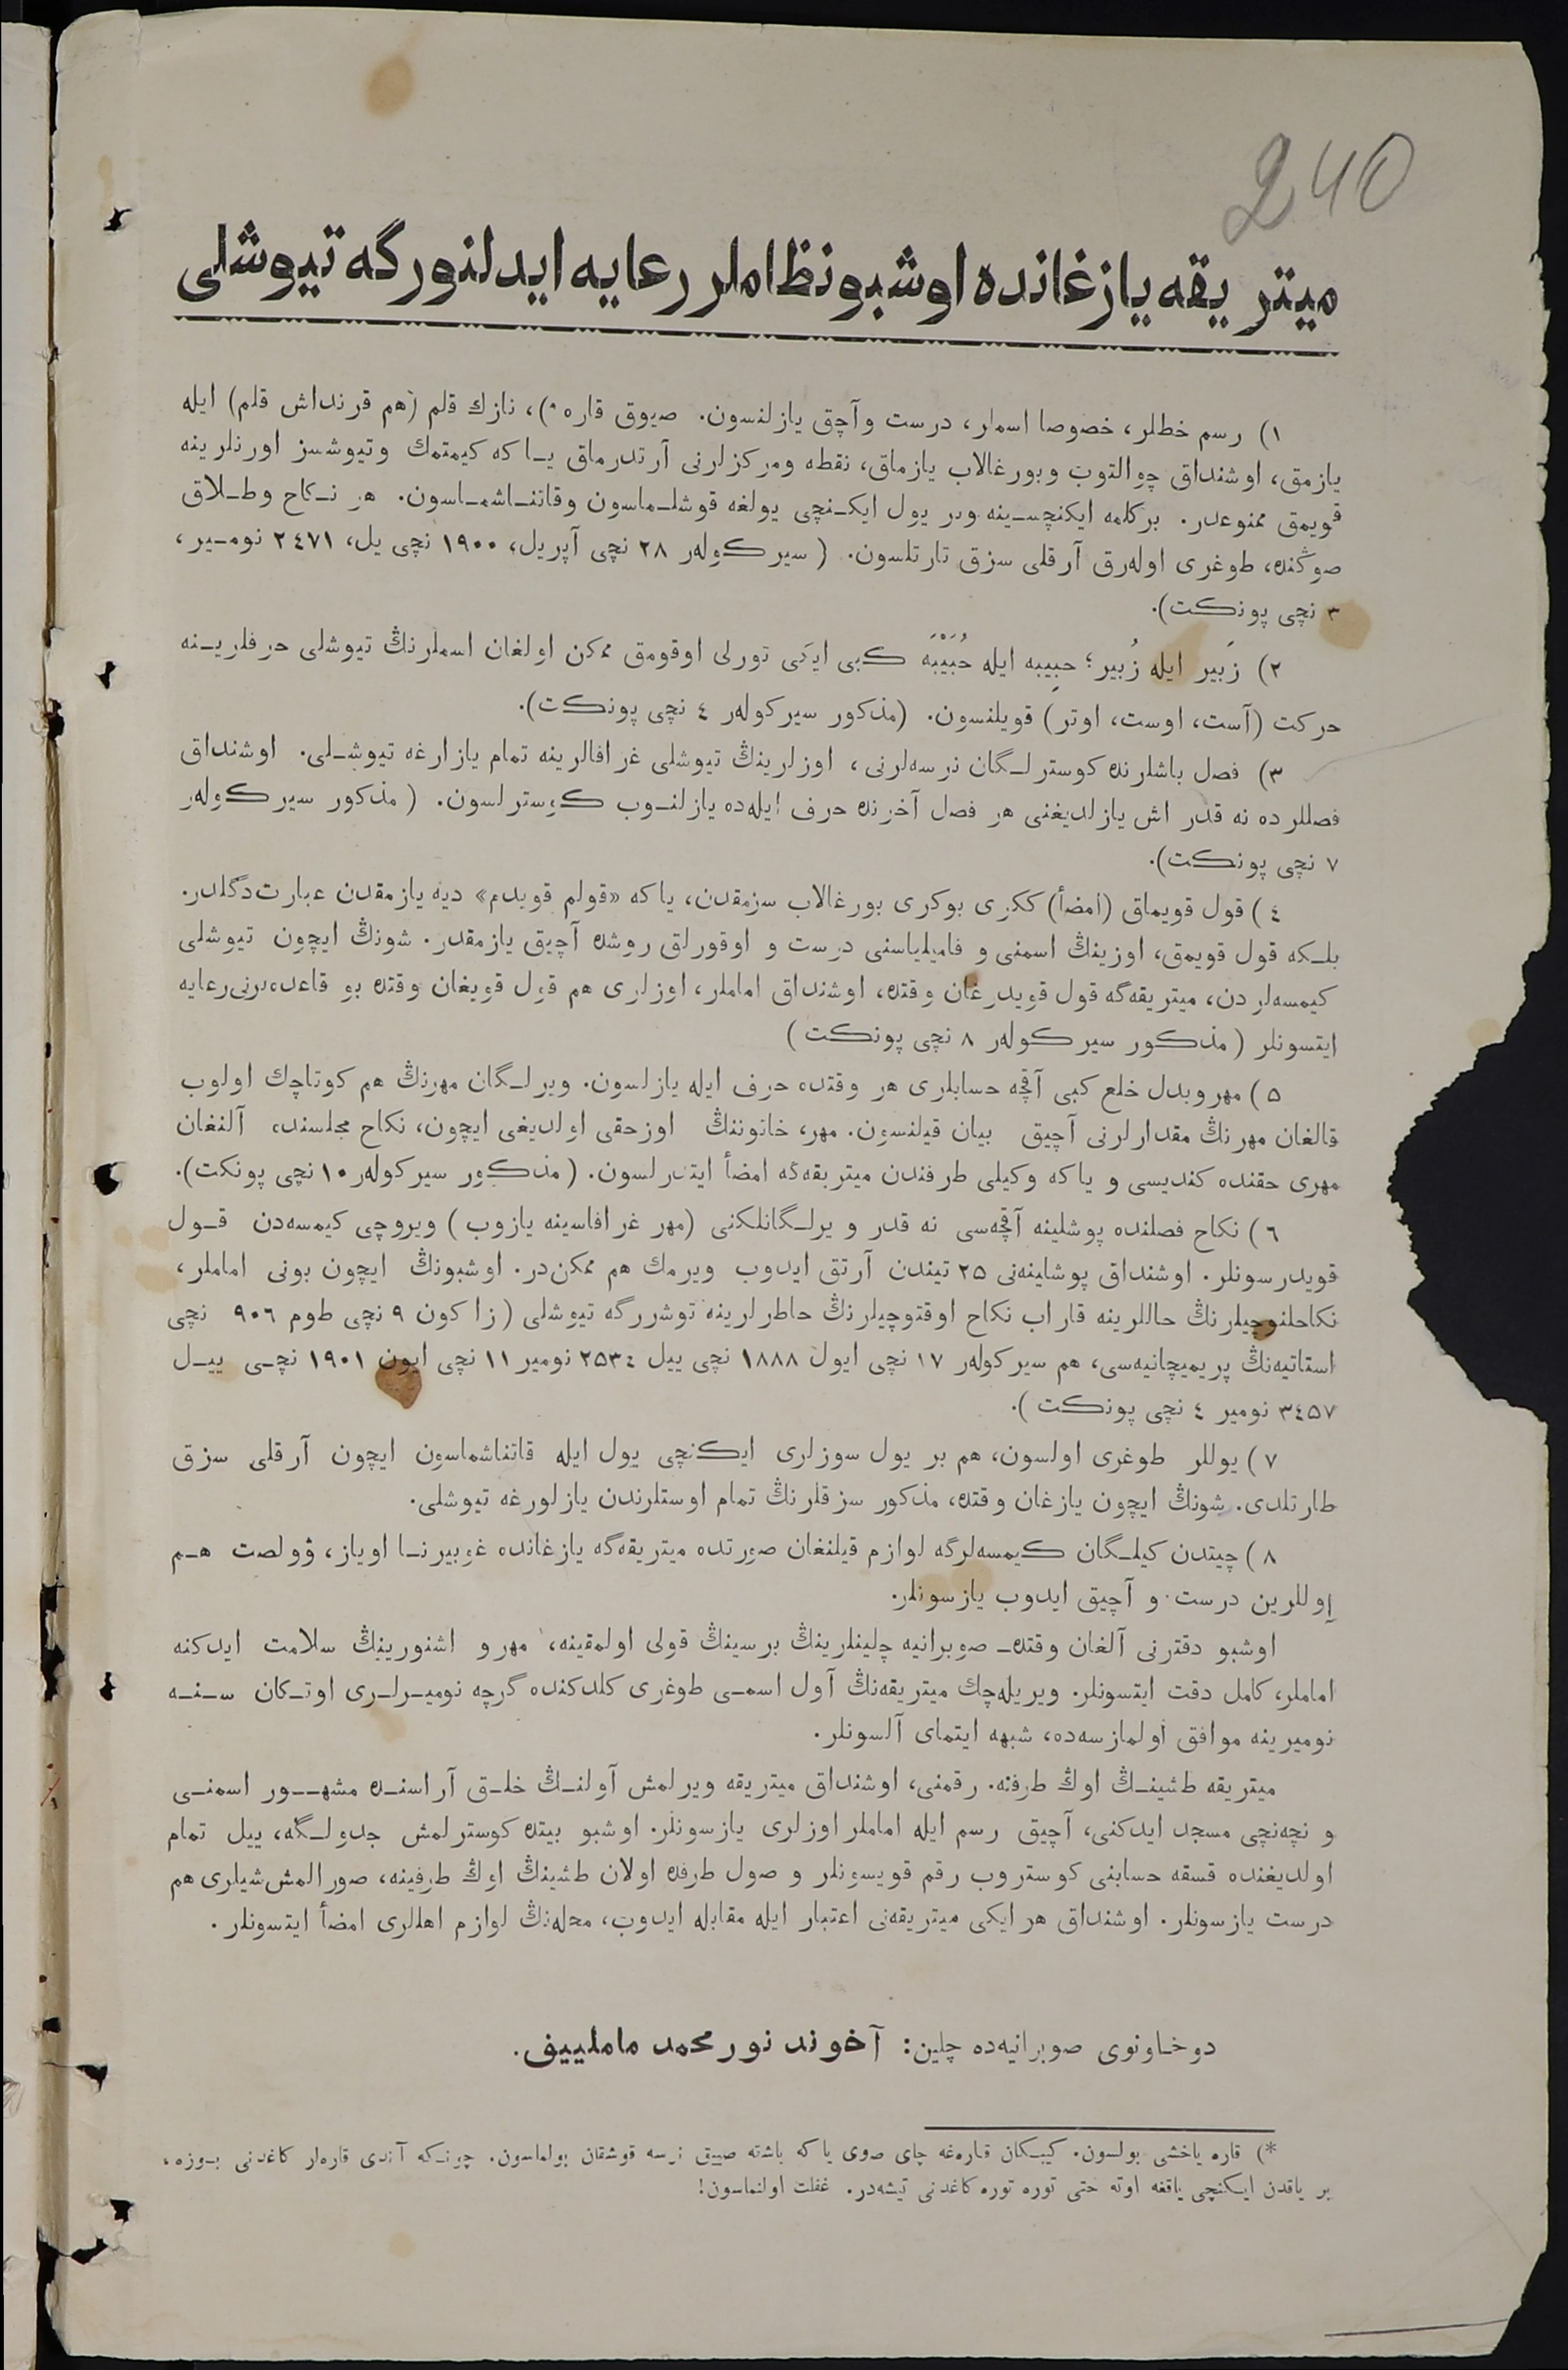 240
میتریقه یازغانده اوشبو نظاملر رعایه ایدلنورگه تیوشلی
۱) رسم خطلر، خصوصا اسملر، درست وآچق یازلنسون. صیوق قاره*)، نازك قلم (هم قرنداش قلم) ایله
یازمق، اوشنداق چوالتوب وبورغالاب یازماق، نقطه ومرکزلرنی آرتدرماق یـا که کیمتمك وتیوشسز اورنلرینه
قویمق ممنوعدر. برکلمه ایکنچسـینه وبر یول ایکـنچی یولغه قوشلـماسون وقاتنـاشمـاسون. هر نـکاح وطـلاق
صوڭنده، طوغری اولەرق آرقلی سزق تارتلسون. (سیرکولەر ۲۸ نچی آپریل، ۱۹۰۰ نچی یل، ۲٤۷۱ نومـیر،
۳ نچی پونکت).
۲) زَبیر ایله زُبیر؛ حبِیبه ایله حُبَیْبَه کبی ایکی تورلی اوقومق ممکن اولغان اسملرنڭ تیوشلی حرفلریـنه
حرکت (آست، اوست، اوتر) قویلنسون. (مذکور سیرکولەر ٤ نچی پونکت).
۳) فصل باشلرنده کوسترلـگان نرسەلرنی، اوزلرینڭ تیوشلی غرافالرینه تمام یازارغه تیوشـلی. اوشنداق
فصللرده نه قدر اش یازلدیغنی هر فصل آخرنده حرف ایلەده یازلنـوب کوسترلسون. (مذکور سیرکولەر
۷ نچی پونکت).
٤) قول قویماق (امضأ) ککری بوکری بورغالاب سزمقدن، یاکه «قولم قویدم» دیه یازمقدن عبارت دگلدر.
بلـکه قول قویمق، اوزینڭ اسمنی و فامیلیاسنی درست و اوقورلق روشده آچیق یازمقدر. شونڭ ایچون تیوشلی
کیمسەلردن، میتریقەگه قول قویدرغان وقتده، اوشنداق اماملر، اوزلری هم قول قویغان وقتده بو قاعدەلرنی رعایه
ایتسونلر (مذکور سیرکولەر ۸ نچی پونکت)
۵) مهر وبدل خلع کبی آقچه حسابلری هر وقتده حرف ایله یازلسون. ویرلـگان مهرنڭ هم کوتاچك اولوب
قالغان مهرنڭ مقدارلرنی آچیق بیان قیلنسون. مهر، خاتوننڭ اوزحقی اولدیغی ایچون، نکاح مجلسنده آلنغان
مهری حقنده کندیسی و یاکه وکیلی طرفندن میتریقەگه امضأ ایتدرلسون. (مذکور سیرکولەر ۱۰ نچی پونکت).
٦) نکاح فصلنده پوشلینه آقچەسی نه قدر ویرلـگانلکنی (مهر غرافاسینه یازوب) ویروچی کیمسەدن قـول
قویدرسونلر. اوشنداق پوشلینەنی ۲۵ تیندن آرتق ایدوب ویرمك هم ممکن‌در. اوشبونڭ ایچون بونی اماملر،
نکاحلنوچیلرنڭ حاللرینه قاراب نکاح اوقتوچیلرنڭ خاطرلرینه توشررگه تیوشلی (زاکون ۹ نچی طوم ۹۰٦ نچی
استاتیەنڭ پریمیچانیەسی، هم سیرکولەر ۱۷ نچی ایول ۱۸۸۸ نچی ییل ۲۵۳٤ نومیر ۱۱ نچی ایون ۱۹۰۱ نچـی ییـل
۳٤۵۷ نومیر ٤ نچی پونکت).
۷) یوللر طوغری اولسون، هم بر یول سوزلری ایکنچی یول ایله قاتناشماسون ایچون آرقلی سزق
طارتلدی. شونڭ ایچون یازغان وقتده، مذکور سزقلرنڭ تمام اوستلرندن یازلورغه تیوشلی.
۸) چیتدن کیلـگان کیمسەلرگه لوازم قیلنغان صورتده میتریقەگه یازغانده غوبیرنـا اویاز، ۋولصت هـم
اوللرین درست و آچیق ایدوب یازسونلر.
اوشبو دفترنی آلغان وقتده ـ صوبرانیه چلینلرینڭ برسینڭ قولی اولمقینه، مهر و اشنورینڭ سلامت ایدکنه
اماملر، کامل دقت ایتسونلر. ویریلەچك میتریقەنڭ آول اسمـی طوغری کلدکنده گرچه نومیـرلـری اوتـکان سـنـه
نومیرینه موافق اولمازسەده، شبهه ایتمای آلسونلر.
میتریقه طشینـڭ اوڭ طرفنه. رقمنی، اوشنداق میتریقه ویرلمش آولنـڭ خلـق آراسنـده مشهــور اسمنـی
و نچەنچی مسجد ایدکنی، آچیق رسم ایله اماملر اوزلری یازسونلر. اوشبو بیتده کوسترلمش جدولـگه، ییل تمام
اولدیغنده قسقه حسابنی کوستروب رقم قویسونلر و صول طرفده اولان طشینڭ اوڭ طرفینه، صورالمش شیلری هم
درست یازسونلر. اوشنداق هر ایکی میتریقەنی اعتبار ایله مقابله ایدوب، محلەنڭ لوازم اهللری امضأ ایتسونلر.
دوخاونوی صوبرانیەده چلین: آخوند نورمحمد ماملییف.
*) قاره یاخشی بولسون. کیبـکان قارەغه چای صوی یاکه باشته صییق نرسه قوشقان بولماسون. چونـکه آندی قارەلر کاغدنی بـوزه،
بر یاقدن ایـکنچی یاقغه اوته حتی توره توره کاغدنی تیشەدر. غفلت اولنماسون!